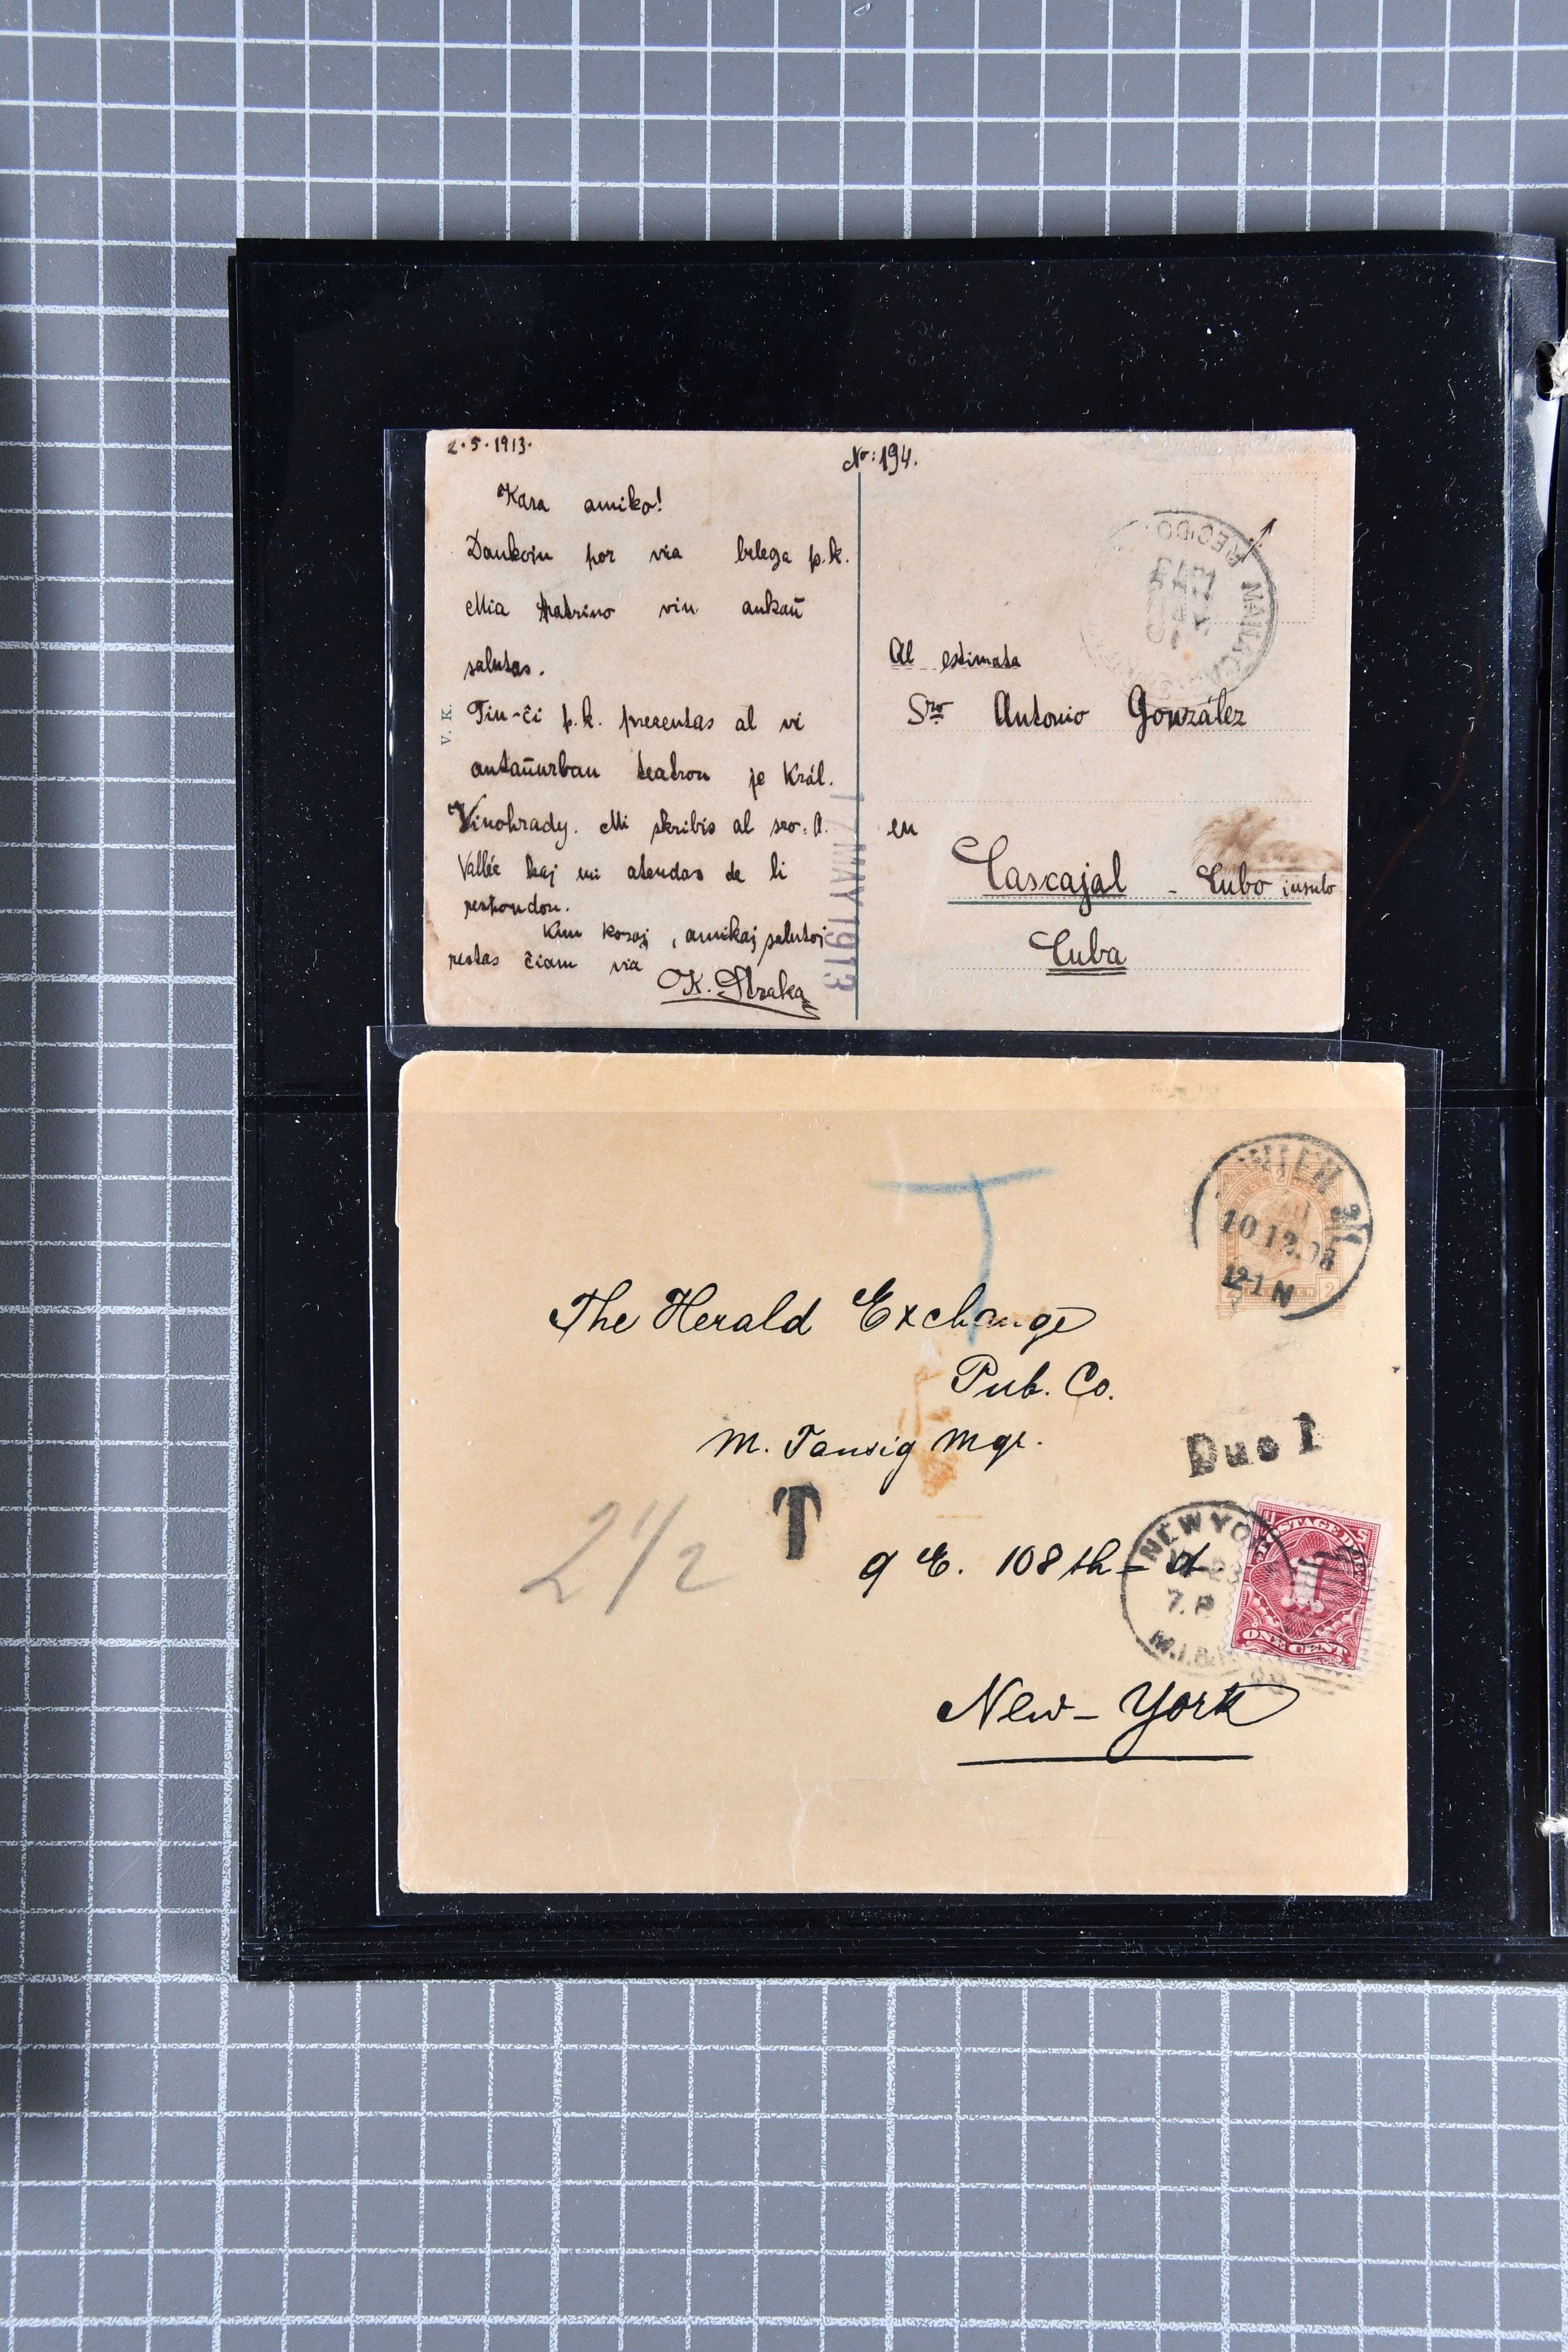 2.5.1913.
No: 194.
Kara amiko!
Dankoju por via belega p.k.
Mia fratrino vin ankaŭ
salutas.
Tiu-ĉi p.k. prezentas al vi
antaŭurban teatron je Král.
Vinohrady. Mi skribis al sro. A.
Vallée kaj mi atendas de li
respondon.
Kun koraj, amikaj salutoj
restas ĉiam via
K. Straka
V. K.
17 MAY 1913
RECIDO
Al estimata
Sro Antonio González
en
Cascajal - Cubo insulo
Cuba
WIEN
10 12.98
12-1 N
T
The Herald Exchange
Pub. Co.
M. Tausig Mgr.
Due 1
T
2 1/2
9 E. 108th - st
NEW YO
7. P
POSTAGE DUE
1
ONE CENT
New-York